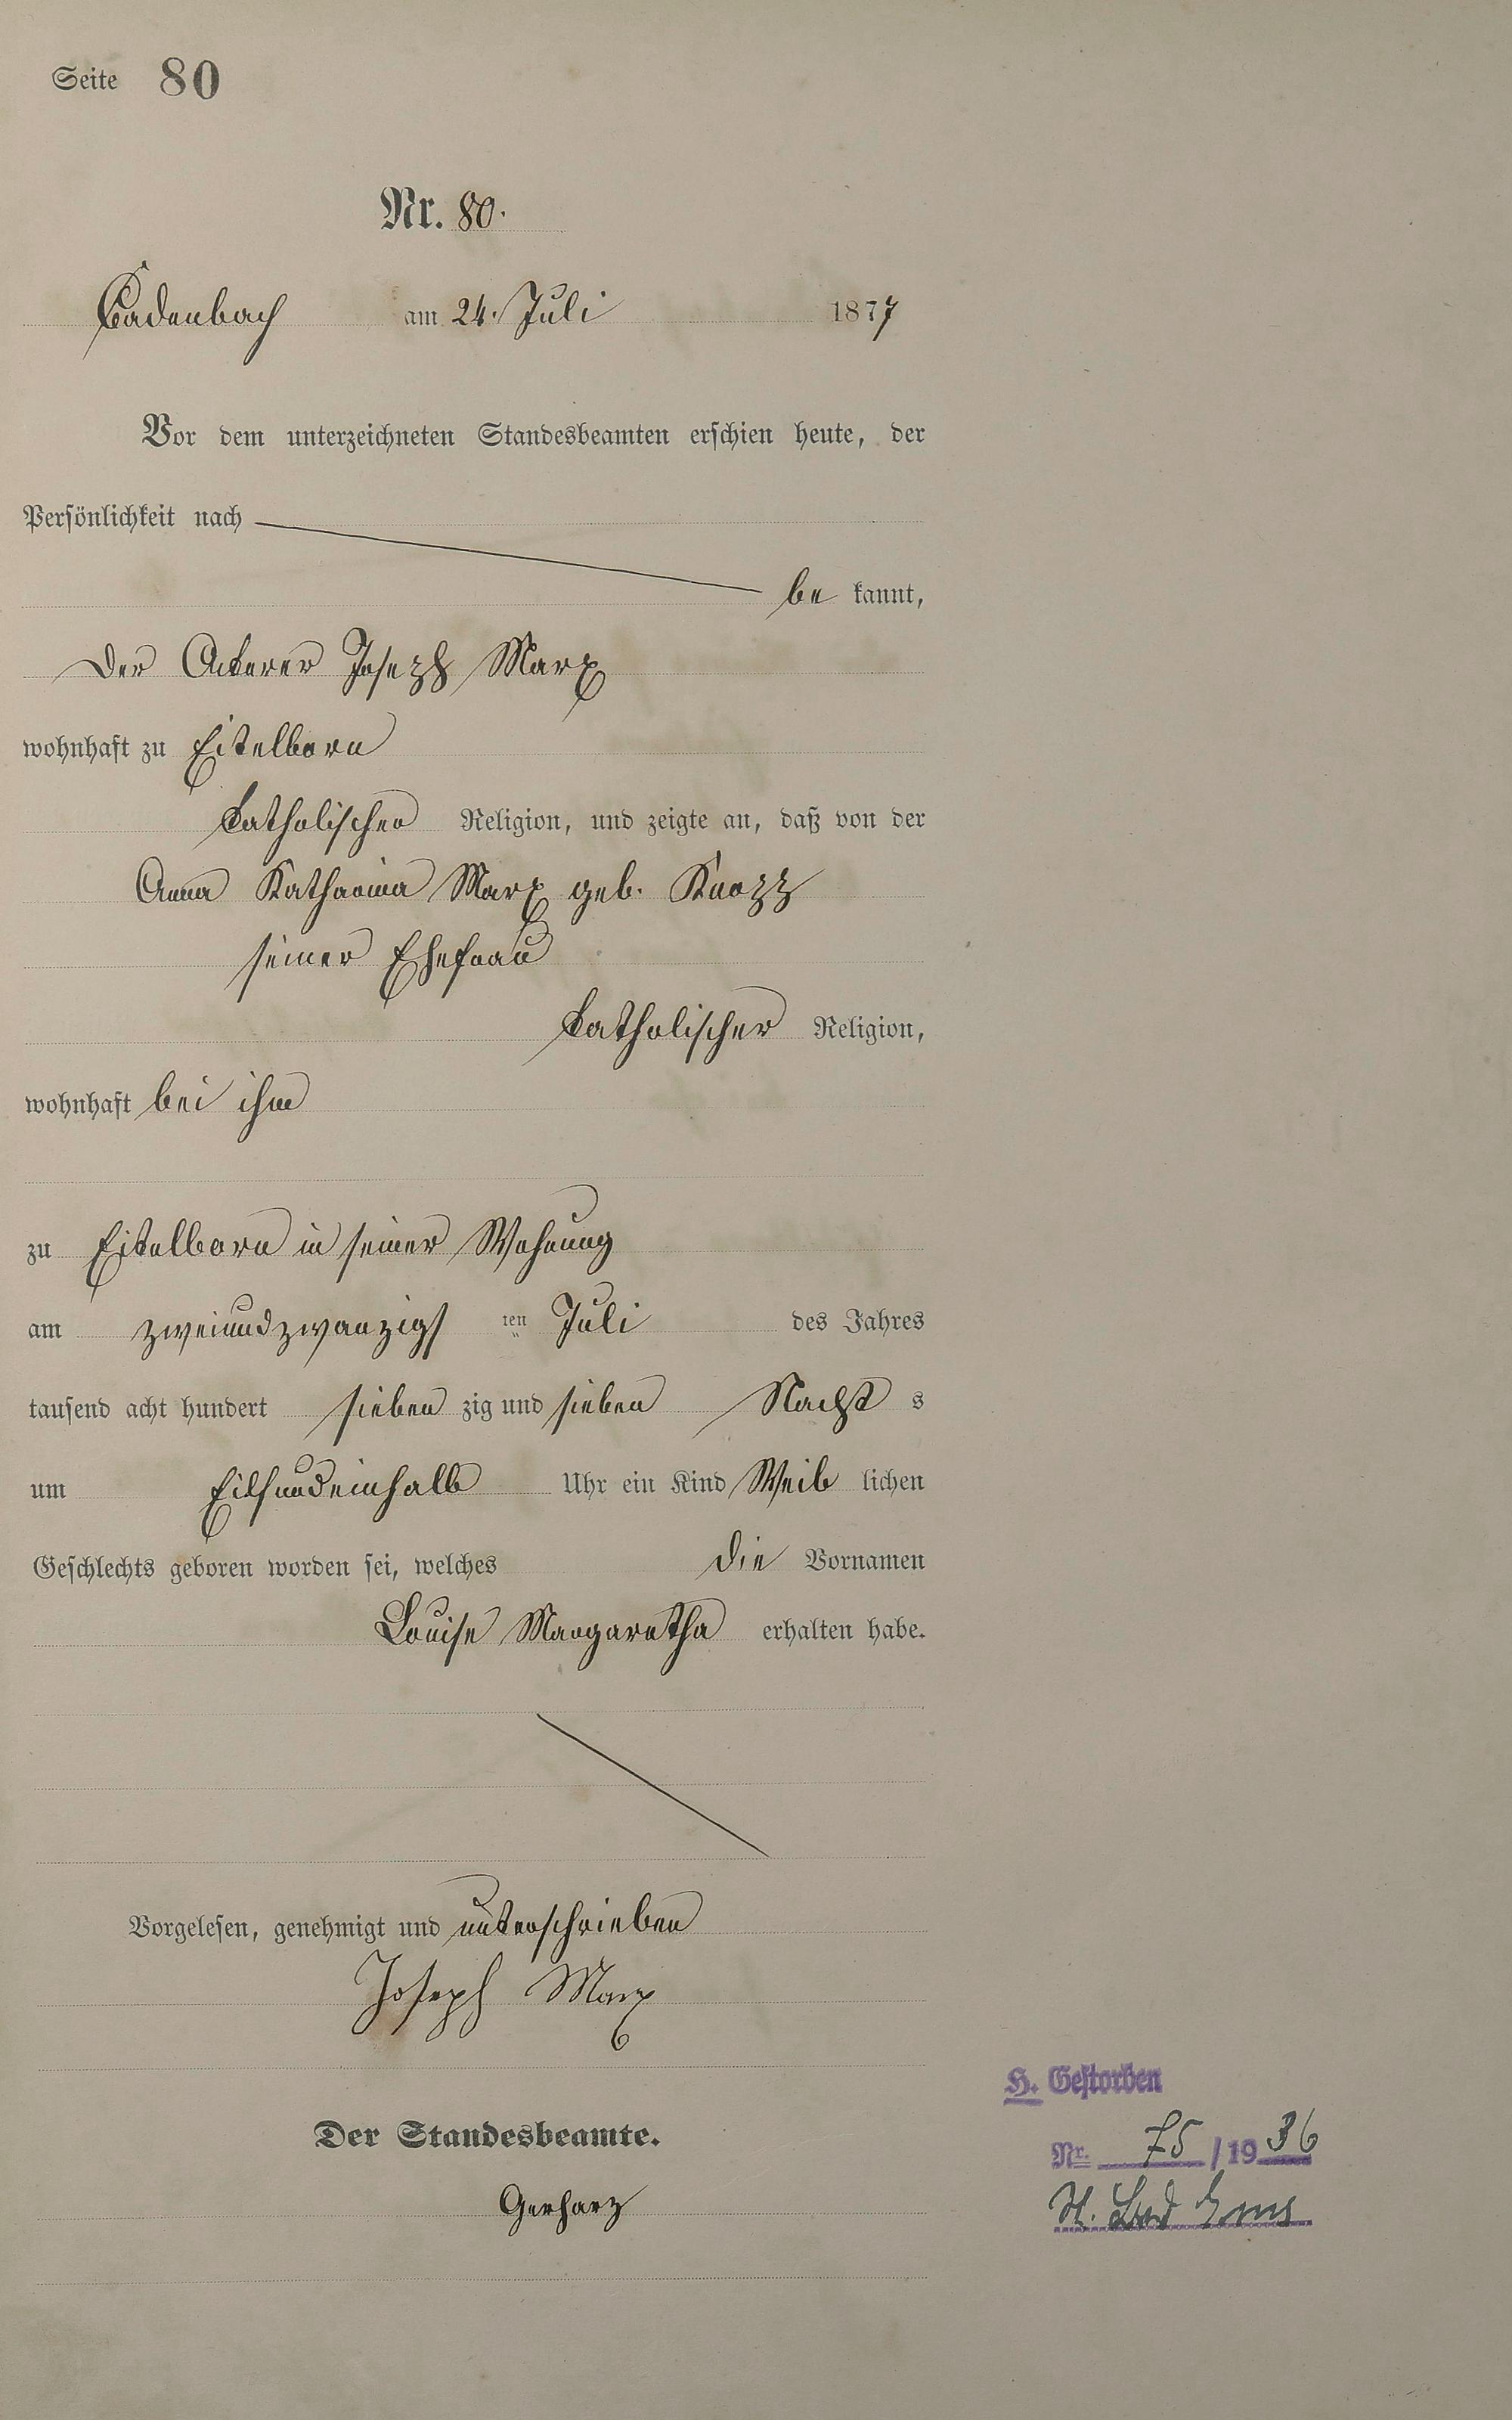 Seite 80
Nr. 80.
Cadenbach am 24. Juli 1877
Vor dem unterzeichneten Standesbeamten erschien heute, der
Persönlichkeit nach
be kannt,
der Ackerer Joseph Marx
wohnhaft zu Eitelborn
katholischer Religion, und zeigte an, daß von der
Anna Katharina Marx geb. Knopp
seiner Ehefrau
katholischer Religion,
wohnhaft bei ihm
zu Eitelborn in seiner Wohnung
am zweiundzwanzigs ten Juli des Jahres
tausend acht hundert sieben zig und sieben Nacht s
um Eilfundeinhalb Uhr ein Kind Weib lichen
Geschlechts geboren worden sei, welches die Vornamen
Louise Margaretha erhalten habe.
Vorgelesen, genehmigt und unterschrieben
Joseph Marx
Der Standesbeamte.
Gerharz
H. Gestorben
Nr. 75 /1936
St. Bad Ems